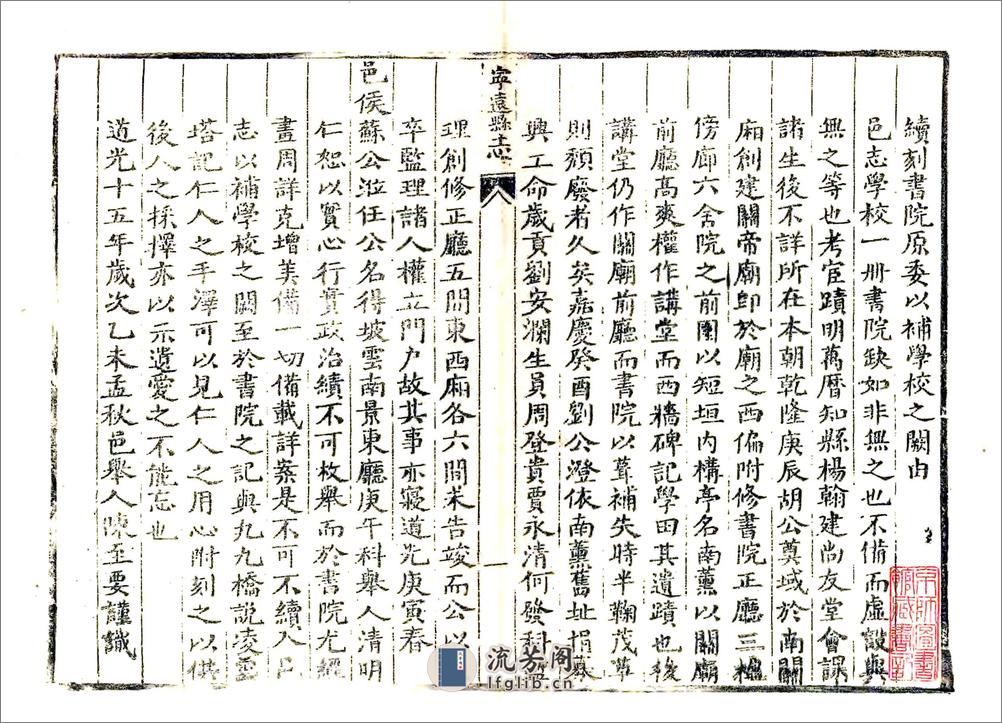 續刻書院原委以補學校之闕由
邑志學校一册書院缺如非無之也不備而虛設與
無之等也考宦蹟明萬曆知縣楊翰建尚友堂會課
諸生後不詳所在本朝乾隆庚辰胡公奠域於南關
廂創建關帝廟卽於廟之西偏附修書院正廳三楹
傍廊六舍院之前圍以短垣内構亭名南薰以關廟
前廳高爽權作講堂而西牆碑記學田其遺蹟也後
講堂仍作關廟前廳而書院以葺補失時半鞠茂草
則頽廢者久矣嘉慶癸酉劉公澄依南薰舊址捐
興工命歲貢劉安瀾生員周登貴賈永清何發科
寧遠縣志
八
一
理創修正廳五間東西廂各六間未告竣而公以
卒監理諸人權立門户故其事亦寢道光庚寅春
邑侯蘇公涖任公名得坡雲南景東廳庚午科舉人清明
仁恕以實心行實政治績不可枚舉而於書院尤經
畫周詳克增美備一切備載詳案是不可不續入邑
志以補學校之闕至於書院之記與九九橋說凌雲
塔記仁人之手澤可以見仁人之用心附刻之以供
後人之採擇亦以示遺愛之不能忘也
道光十五年歲次乙未孟秋邑舉人陳至要謹識
京師圖書館藏書記
流芳阁
lfglib.cn